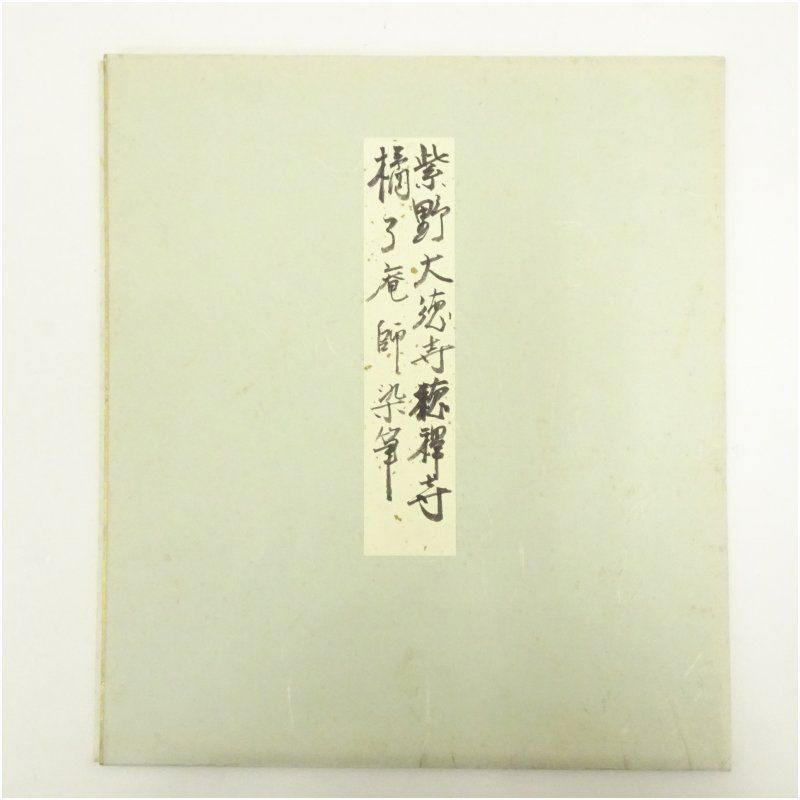 紫野大徳寺徳禪寺
橘了庵師染筆